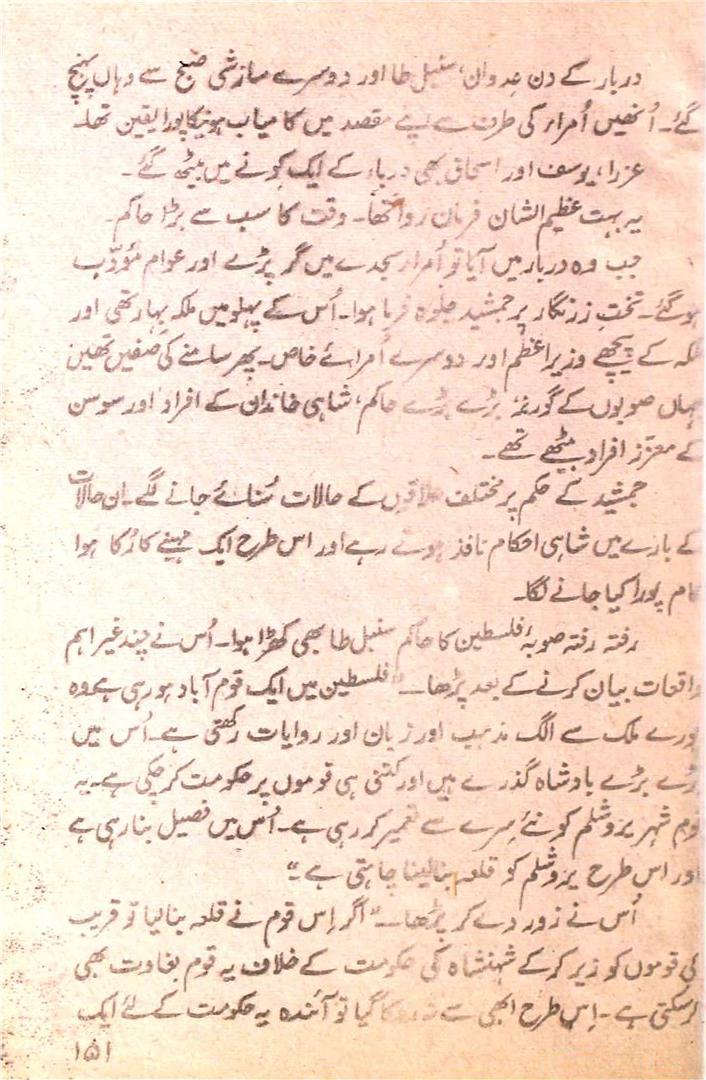 دربار کے دن عدوان، سنبل طا اور دوسرے سازشی صبح سے وہاں پہنچ
گئے۔ اُنھیں اُمراء کی طرف سے اپنے مقصد میں کامیاب ہونیکا پورا یقین تھا۔
عزرا، یوسف اور اسحاق بھی دربار کے ایک کونے میں بیٹھ گئے۔
یہ بہت عظیم الشان فرمان روا تھا۔ وقت کا سب سے بڑا حاکم۔
جب وہ دربار میں آیا تو اُمراء سجدے میں گر پڑے اور عوام مُؤدّب
ہوگئے۔ تختِ زرنگار پر جمشید جلوہ فرما ہوا۔ اُس کے پہلو میں ملکہ بہار تھی اور
ملکہ کے پیچھے وزیراعظم اور دوسرے اُمرائے خاص۔ پھر سامنے کی صفیں تھیں
جہاں صوبوں کے گورنر، بڑے بڑے حاکم، شاہی خاندان کے افراد اور سوسن
کے معزّز افراد بیٹھے تھے۔
جمشید کے حکم پر مختلف علاقوں کے حالات سُنائے جانے لگے۔ ان حالات
کے بارے میں شاہی احکام نافذ ہوتے رہے اور اس طرح ایک مہینے کا رُکا ہوا
کام پورا کیا جانے لگا۔
رفتہ رفتہ صوبۂ فلسطین کا حاکم سنبل طا بھی کھڑا ہوا۔ اُس نے چند غیر اہم
واقعات بیان کرنے کے بعد پڑھا۔ "فلسطین میں ایک قوم آباد ہو رہی ہے وہ
پورے ملک سے الگ مذہب اور زبان اور روایات رکھتی ہے۔ اُس میں
بڑے بڑے بادشاہ گذرے ہیں اور کتنی ہی قوموں پر حکومت کر چکی ہے۔ یہ
قوم شہر یروشلم کو نئے سِرے سے تعمیر کر رہی ہے۔ اُس میں فصیل بنا رہی ہے
اور اس طرح یروشلم کو قلعہ بنا لینا چاہتی ہے۔"
اُس نے زور دے کر پڑھا۔ "اگر اِس قوم نے قلعہ بنا لیا تو قریب
کی قوموں کو زیر کرکے شہنشاہ کی حکومت کے خلاف یہ قوم بغاوت بھی
کر سکتی ہے۔ اِس طرح ابھی سے نہ روکا گیا تو آئندہ یہ حکومت کے لئے ایک
۱۵۱